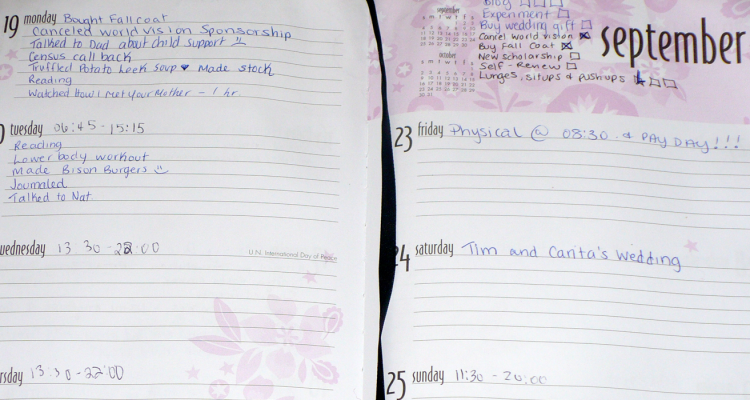 19 monday Bought Fall coat
Canceled world vision Sponsorship
Talked to Dad about child support
Census call back
Truffled Potato Leek Soup ♥ Made stock
Reading
Watched How I Met Your Mother - 1 hr.
tuesday 06:45-15:15
Reading
Lower body workout
Made Bison Burgers
Journaled
Talked to Nat
wednesday 13 30-22:00
U.N. International Day of Peace
rsday 13:30-22:00
Blog
Experiment
Buy wedding gift
Cancel World vision
Buy Fall Coat
New Scholarship
Self-Review
Lunges, situps & pushups
september
september
october
23 friday Physical @ 08:30 & PAY DAY!!!
24 saturday Tim and Carita's Wedding
25 sunday 11:30 - 20:00